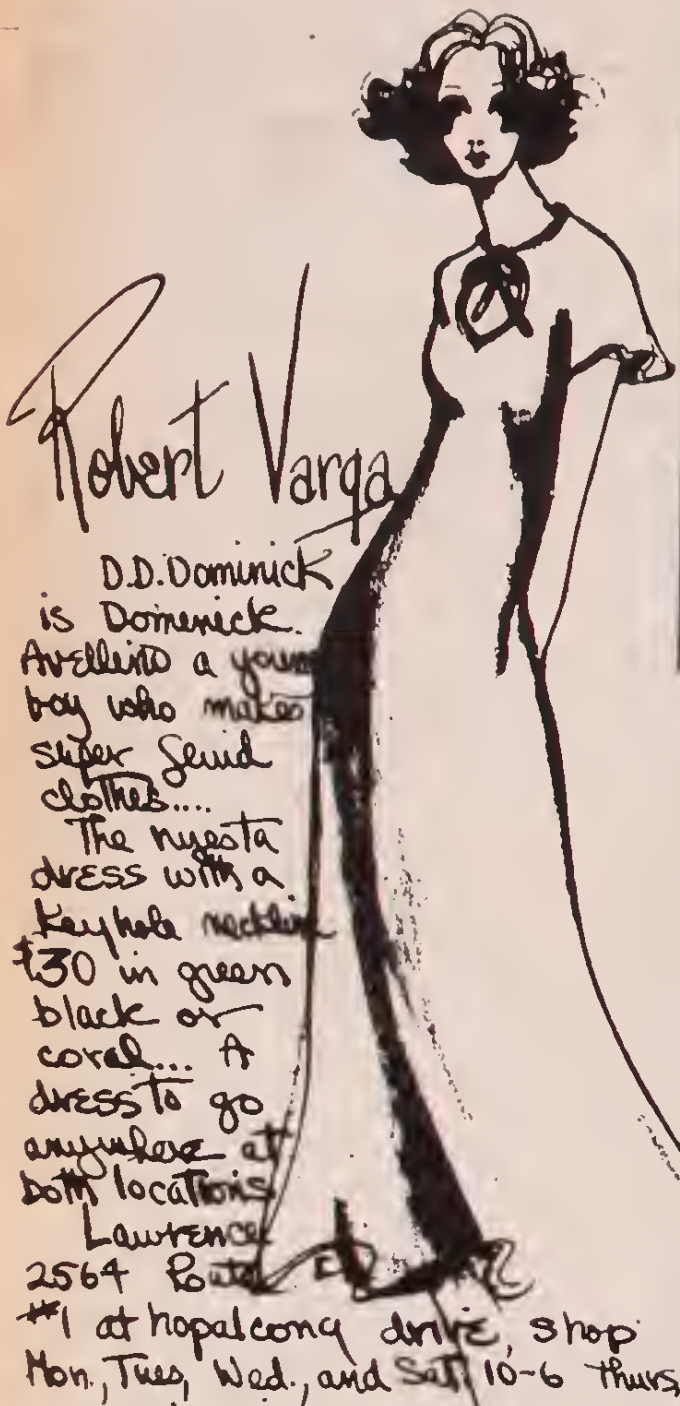 Robert Varga
D.D. Dominick
is Domenick
Avellino a young
boy who makes
super fluid
clothes....
The nyesta
dress with a
Keyhole neckline
$30 in green
black or
coral... A
dress to go
anywhere at
both locations
Lawrence
2564 Route
#1 at hopalcong drive, shop
Mon., Tues, Wed., and Sat. 10-6 thurs,